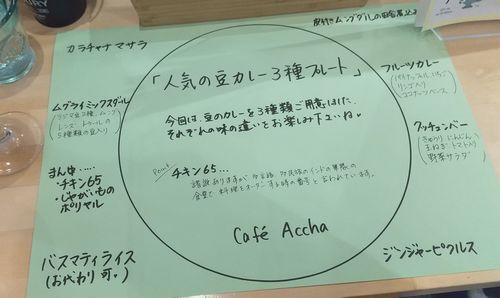 カラチャナマサラ
皮付きムングダルの田舎煮込み
「人気の豆カレー3種プレート」
今回は、豆のカレーを3種類ご用意しました
それぞれの味の違いをお楽しみ下さいね♥
Point
チキン65…
諸説ありますが、多言語、多民族のインドの軍隊の
食堂で料理をオーダーする時の番号と言われています。
Café Accha
ムグライミックスダール
レンズ・トゥールの
5種類の豆入り
まん中・・・・
・チキン65
・じゃがいもの
ポリヤル
バスマティライス
(お代わり可♥)
フルーツカレー
リンゴ入り
ココナッツベース
クッチュンバー
きゅうり にんじん
玉ねぎ トマト入り
野菜サラダ
ジンジャーピクルス